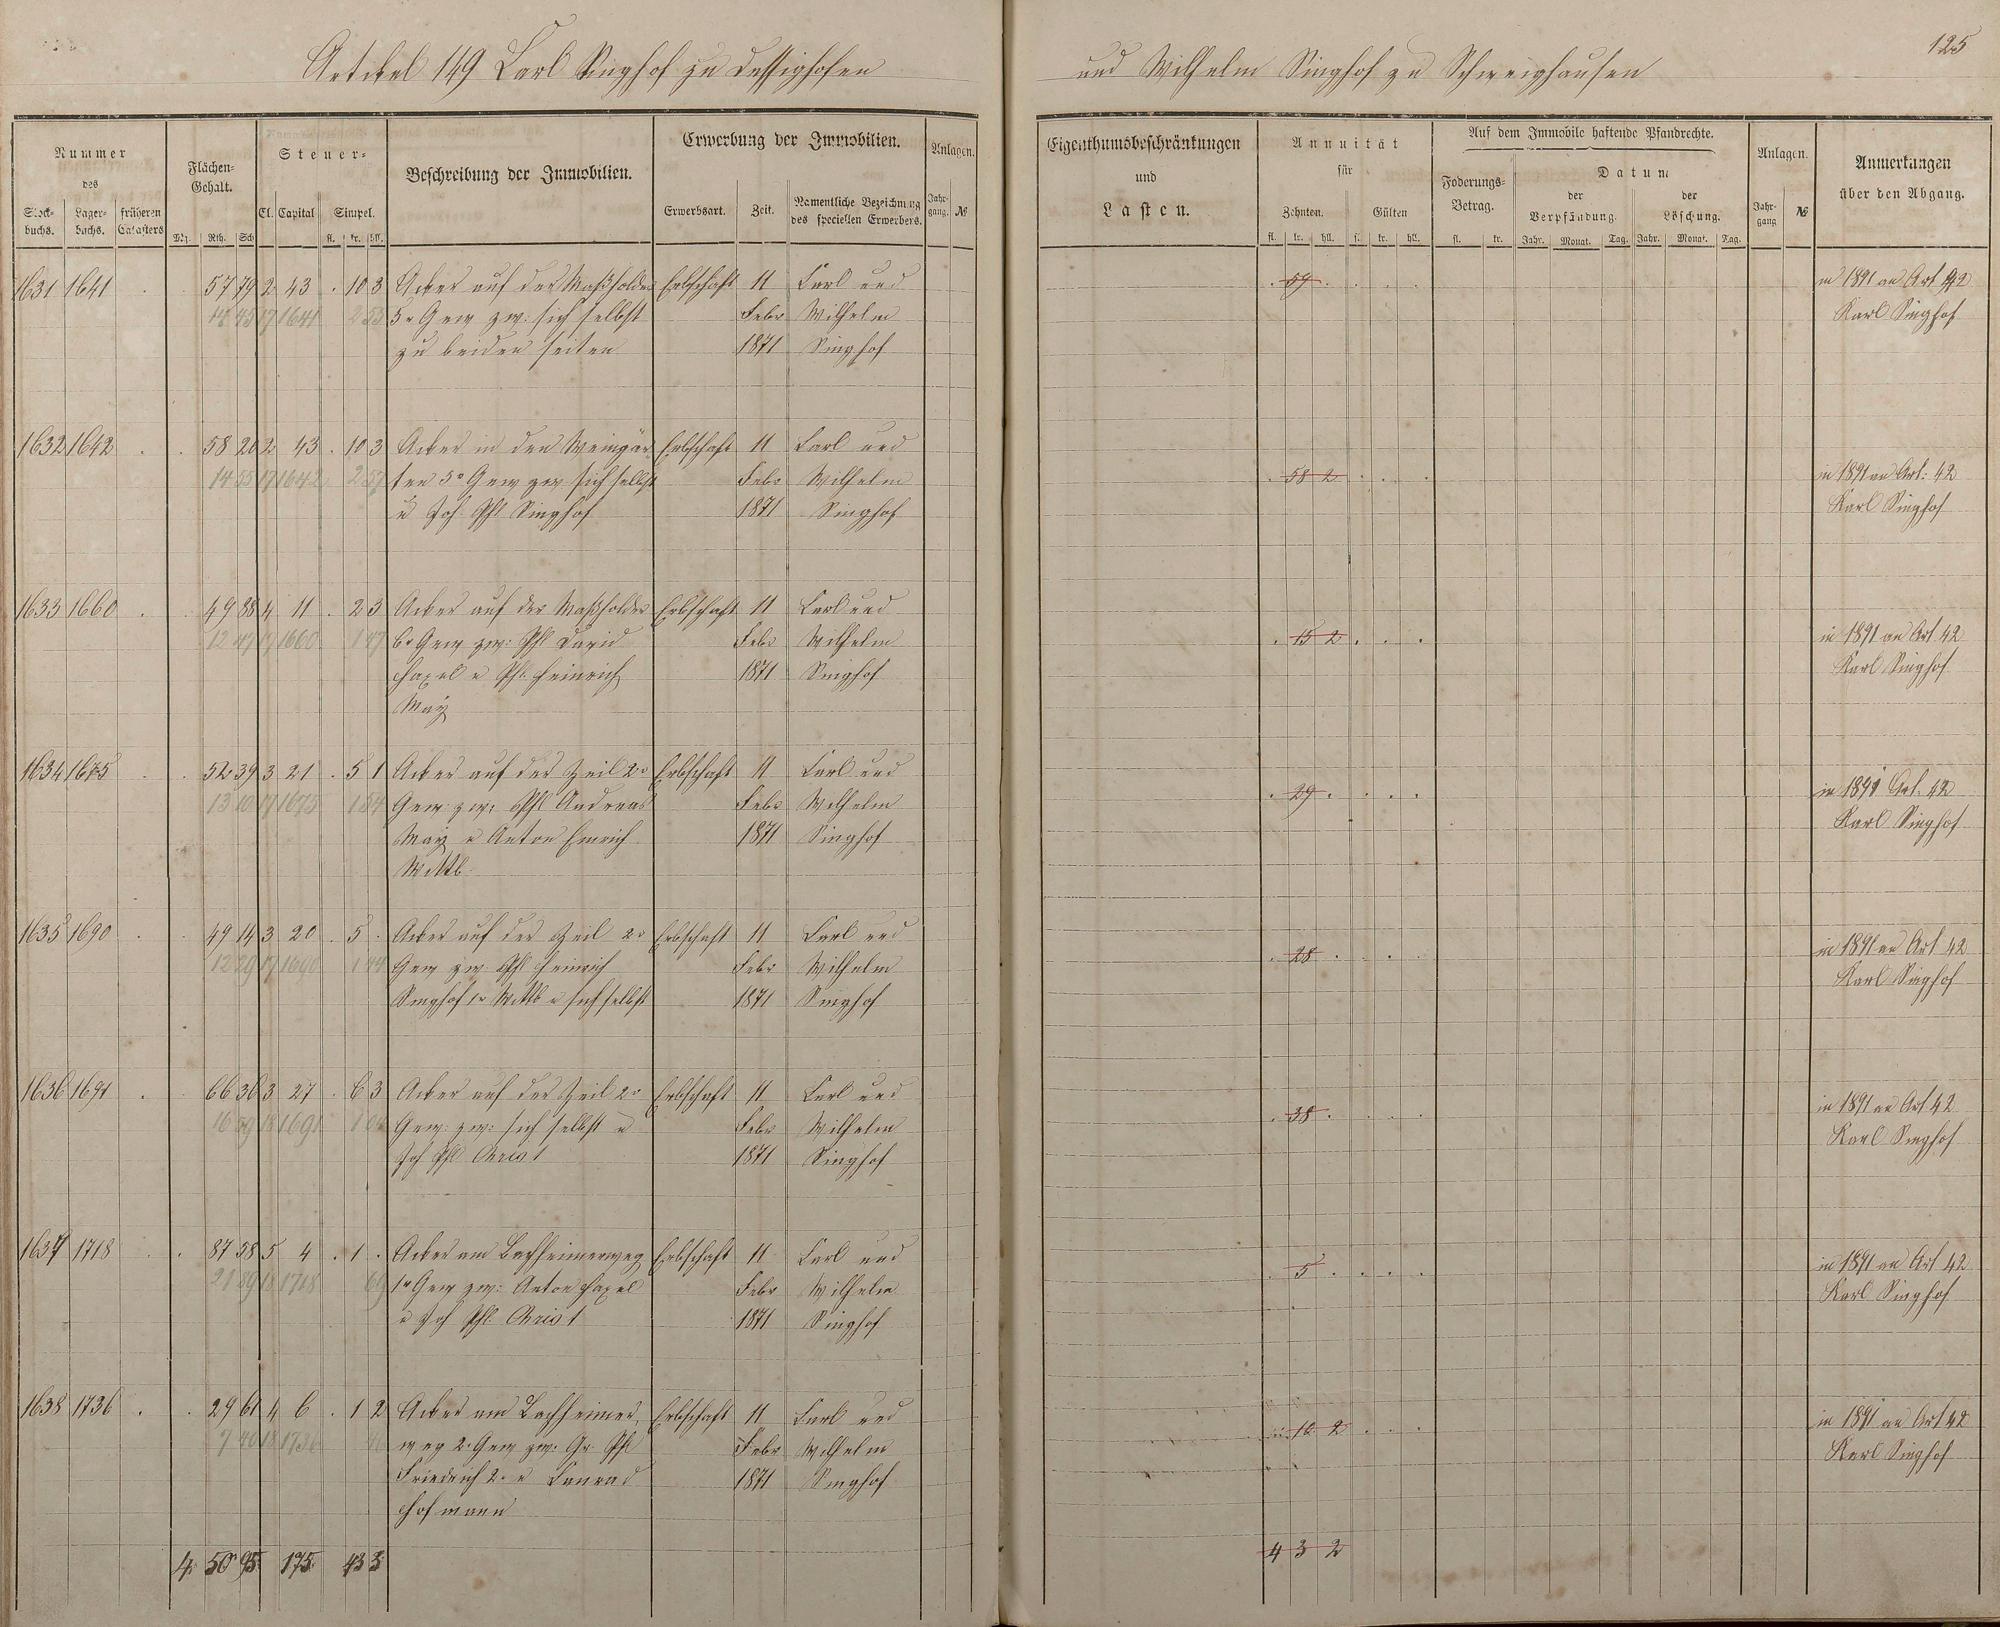 Artikel 149 Carl Singhof zu Dessighofen
und Wilhelm Singhof zu Schweighausen
125
Nummer
des
Stock-
buchs.
Lager-
buchs.
früheren
Catasters
Flächen-
Gehalt.
Mg. Rth. Sch
Steuer-
Cl. Capital Simpel.
fl. kr. hll.
Beschreibung der Immobilien.
Erwerbung der Immobilien.
Erwerbsart. Zeit.
Namentliche Bezeichnung
des speciellen Erwerbers.
Anlagen.
Jahr-
gang. №
Eigenthumsbeschränkungen
und
Lasten.
Annuität
für
Zehnten. Gülten
fl. kr. hll. f. kr. hll.
Auf dem Immobile haftende Pfandrechte.
Foderungs-
Betrag.
fl. kr.
Datum
der
Verpfändung.
der
Löschung.
Jahr. Monat. Tag. Jahr. Monat. Tag.
Anlagen.
Jahr-
gang №
Anmerkungen
über den Abgang.
1631 1641 . . 57 79 2 43 . 10 3 Acker auf der Maßholder Erbschaft 11 Carl und . 59 . . . . in 1891 an Art 42
14 45 17 1641 2 55 5r Gew zw: sich selbst Febr Wilhelm Karl Singhof
zu beiden seiten 1871 Singhof
1632 1642 . . 58 20 2 43 . 10 3 Acker in den Weingär Erbschaft 11 Carl und
14 55 17 1642 2 57 ten 5r Gew zw sich selbst Febr Wilhelm . 58 2 . . . in 1891 an Art: 42
u Joh Phl Singhof 1871 Singhof Karl Singhof
1633 1660 . . 49 88 4 11 . 2 3 Acker auf der Maßholder Erbschaft 11 Carl und
12 47 17 1660 1 47 6r Gew zw: Phl David Febr Wilhelm . 15 2 . . . in 1891 an Art 42
Hazel u Phl. Heinrich 1871 Singhof Karl Singhof
May
1634 1675 . . 52 39 3 21 . 5 1 Acker auf der Zeil 2r Erbschaft 11 Carl und
13 10 17 1675 1 54 Gew zw: Phl Andreas Febr Wilhelm . 29 . . . . in 1891 Art. 42
May u Anton Emrich 1871 Singhof Karl Singhof
Wittb.
1635 1690 . . 49 14 3 20 . 5 . Acker auf der Zeil 2r Erbschaft 11 Carl und
12 29 17 1690 1 44 Gew zw: Phl Heinrich Febr Wilhelm . 28 . . . . in 1891 an Art 42
Singhof 1r Wittb u sich selbst 1871 Singhof Karl Singhof
1636 1691 . . 66 36 3 27 . 6 3 Acker auf der Zeil 2r Erbschaft 11 Carl und
16 59 18 1691 Gew: zw: sich selbst u Febr Wilhelm . 38 . . . . in 1891 an Art 42
Joh Phl Christ 1871 Singhof Karl Singhof
1637 1718 . . 87 58 5 4 . 1 . Acker am Bachheimerweg Erbschaft 11 Carl und
21 89 18 1718 69 1r Gew zw: Anton Hazel Febr Wilhelm . 5 . . . . in 1891 an Art 42
u Joh Phl. Christ 1871 Singhof Karl Singhof
1638 1736 . . 29 61 4 6 . 1 2 Acker am Bachheimer Erbschaft 11 Carl und
7 40 18 1736 weg 2r Gew zw: Gg: Phl Febr Wilhelm 10 2 . . . in 1891 an Art 42
Friedrich 2r u Conrad 1871 Singhof Karl Singhof
Hofmann
4 50 95 175 43 3 4 3 2